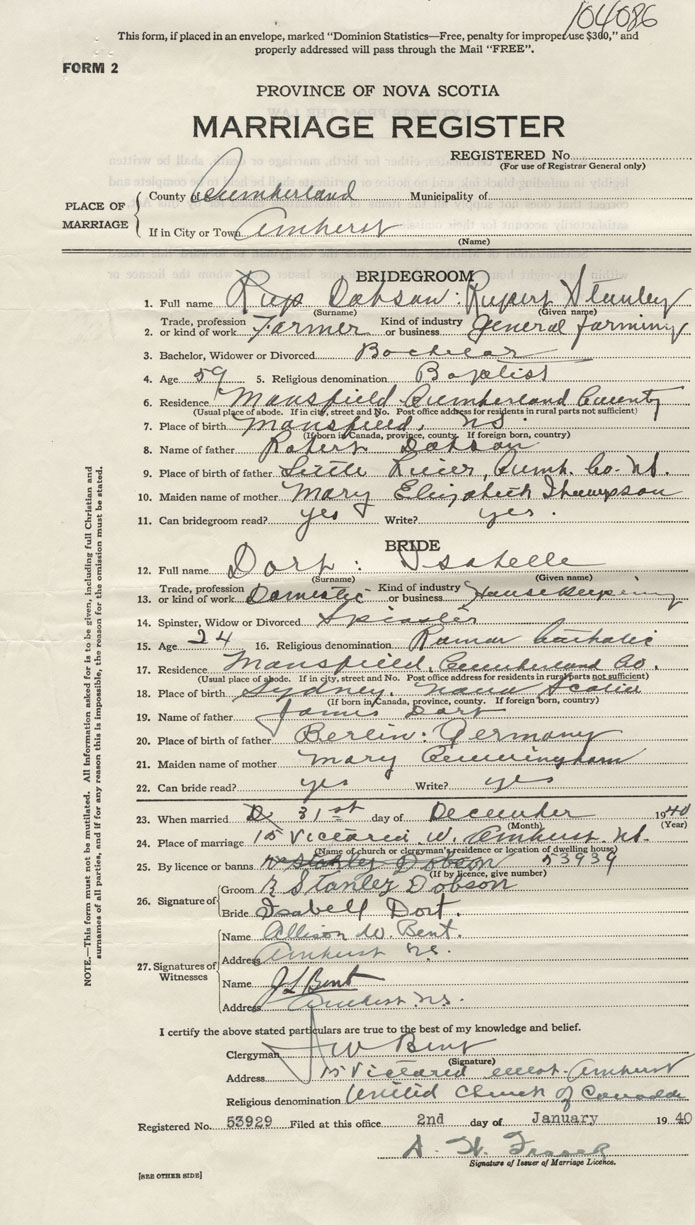 104086
This form, if placed in an envelope, marked "Dominion Statistics—Free, penalty for improper use $300," and
properly addressed will pass through the Mail "FREE".
FORM 2
PROVINCE OF NOVA SCOTIA
MARRIAGE REGISTER
REGISTERED No.
(For use of Registrar General only)
PLACE OF MARRIAGE
County Cumberland Municipality of
If in City or Town Amherst
(Name)
BRIDEGROOM
1. Full name Dobson : Rupert Stanley
(Surname) (Given name)
2. Trade, profession or kind of work Farmer Kind of industry or business General farming
3. Bachelor, Widower or Divorced Bachelor
4. Age 59 5. Religious denomination Baptist
6. Residence Mansfield Cumberland County
(Usual place of abode. If in city, street and No. Post office address for residents in rural parts not sufficient)
7. Place of birth Mansfield, N.S.
(If born in Canada, province, county. If foreign born, country)
8. Name of father Robert Dobson
9. Place of birth of father Little River, Cumb. Co. N.S.
10. Maiden name of mother Mary Elizabeth Thompson
11. Can bridegroom read? yes Write? yes.
BRIDE
12. Full name Dort : Isabelle
(Surname) (Given name)
13. Trade, profession or kind of work Domestic Kind of industry or business Housekeeping
14. Spinster, Widow or Divorced Spinster
15. Age 24 16. Religious denomination Roman Catholic
17. Residence Mansfield, Cumberland Co.
(Usual place of abode. If in city, street and No. Post office address for residents in rural parts not sufficient)
18. Place of birth Sydney, Nova Scotia
(If born in Canada, province, county. If foreign born, country)
19. Name of father James Dort
20. Place of birth of father Berlin. Germany
21. Maiden name of mother Mary Cunningham
22. Can bride read? yes Write? yes
23. When married 31st day of December 1940
(Month) (Year)
24. Place of marriage 15 Victoria W. Amherst N.S.
(Name of church or clergyman's residence or location of dwelling house)
25. By licence or banns Stanley Dobson 53939
(If by licence, give number)
26. Signature of
Groom R Stanley Dobson
Bride Isabell Dort.
27. Signatures of Witnesses
Name Allison W. Bent.
Address Amherst N.S.
Name J L Bent
Address Amherst N.S.
I certify the above stated particulars are true to the best of my knowledge and belief.
Clergyman J W Bent
(Signature)
Address 15 Victoria West. Amherst
Religious denomination United Church of Canada
Registered No. 53929 Filed at this office 2nd day of January 1940
Signature of Issuer of Marriage Licence.
[SEE OTHER SIDE]
NOTE.—This form must not be mutilated. All information asked for is to be given, including full Christian and
surnames of all parties, and if for any reason this is impossible, the reason for the omission must be stated.